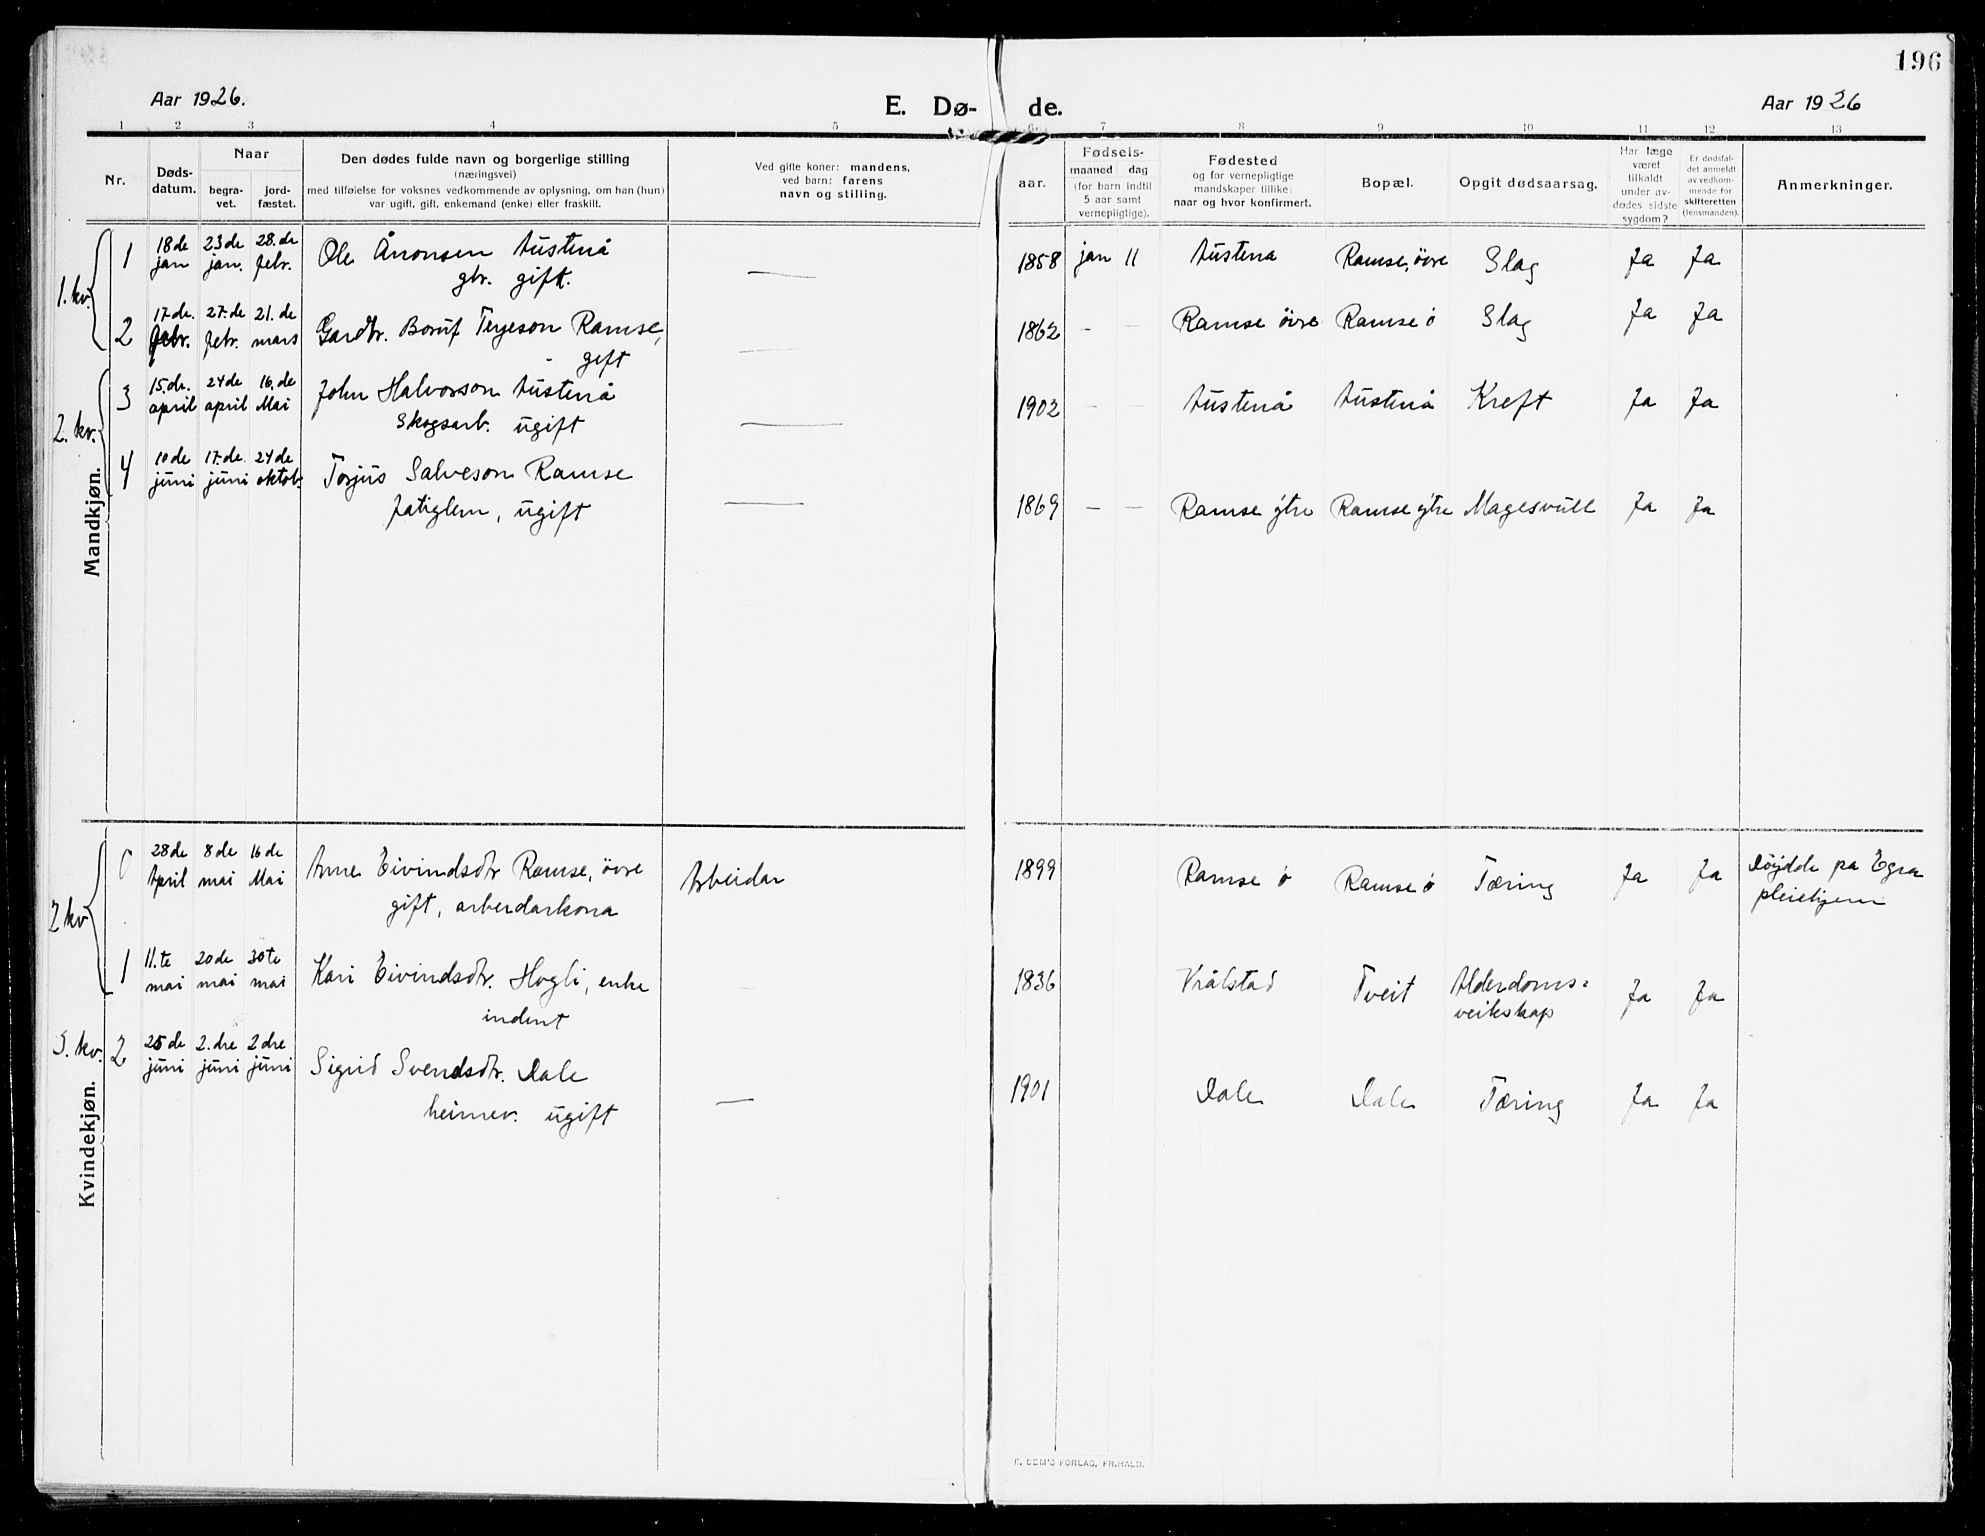 196
Aar 1926.
E. Dø- de.
Aar 1926
1 2 3 4 5 6 7 8 9 10 11 12 13
Nr.
Døds-
datum.
Naar
begra-
vet.
jord-
fæstet.
Den dødes fulde navn og borgerlige stilling
(næringsvei)
med tilføielse for voksnes vedkommende av oplysning, om han (hun)
var ugift, gift, enkemand (enke) eller fraskilt.
Ved gifte koner: mandens,
ved barn: farens
navn og stilling.
Fødsels-
aar.
maaned dag
(for barn indtil
5 aar samt
vernepligtige).
Fødested
og for vernepligtige
mandskaper tillike:
naar og hvor konfirmert.
Bopæl.
Opgit dødsaarsag.
Har læge
været
tilkaldt
under av-
dødes sidste
sygdom?
Er dødsfal-
det anmeldt
av vedkom-
mende for
skifteretten
(lensmanden).
Anmerkninger.
Mandkjøn.
1. kv.
1 18de jan 23de jan. 28.de febr. Ole Ånonsen Austenå — 1858 jan 11 Austenå Ramse, övre Slag Ja Ja
gbr. gift.
2 17.de. febr. 27.de febr. 21.de mars Gardbr. Boruf Terjeson Ramse, — 1862 - — Ramse övre Ramse ö Slag Ja Ja
gift
2. kv.
3 15.de. april 24de april 16.de Mai John Halvorson Austenå — 1902 — — Austenå Austenå Kreft Ja Ja
Skogsarb. ugift
4 10de juni 17.de. juni 24de oktob. Torjus Salveson Ramse — 1869 — — Ramse ytre Ramse ytre Magesvull Ja Ja
fatiglem, ugift
Kvindekjøn.
2 kv
0 28de April 8de mai 16de Mai Anne Eivindsdtr Ramse, övre Arbeidar 1899 Ramse ö Ramse ö Tæring Ja Ja Döydde pa Egra
gift, arberdarkona pleiehjem
1 11.te mai 20de mai 30te mai Kari Eivindsdtr. Hogli, enke 1836 Vrålstad Tveit Alderdoms=
indent veikskap Ja Ja
3. kv.
2 25de juni 2.dre juni 2dre juni Sigrid Svendsdtr. Dale — 1901 Dale Dale Tæring Ja Ja
heimev. ugift
FORLAG, FR.HALD.